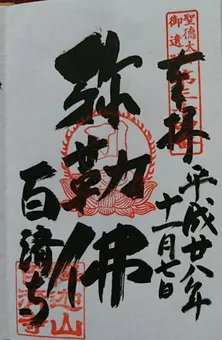 聖徳太
御遺
奉拝
平成廿八年
十一月七日
弥勒佛
百済寺